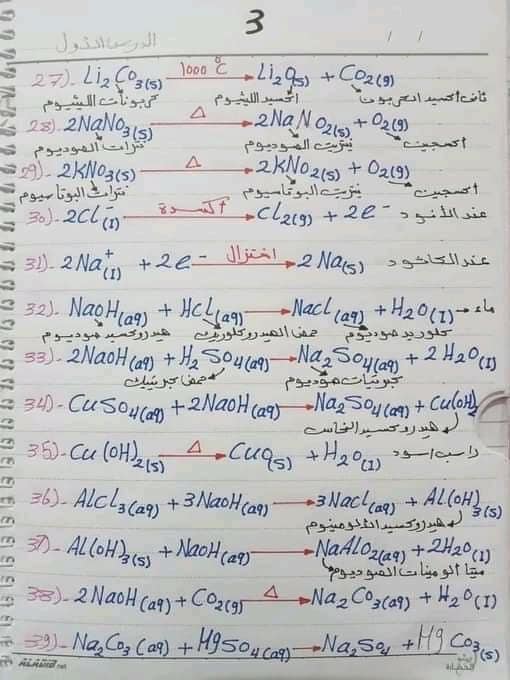 3
الدرس الأول / /
27)- Li2Co3(s) —1000 c°→ Li2O(s) + CO2(g)
كربونات الليثيوم أكسيد الليثيوم ثاني أكسيد الكربون
28)- 2NaNO3(s) —Δ→ 2NaNO2(s) + O2(g)
نترات الصوديوم نيتريت الصوديوم أكسجين
29)- 2KNO3(s) —Δ→ 2KNO2(s) + O2(g)
نترات البوتاسيوم نيتريت البوتاسيوم أكسجين
30)- 2Cl-(l) —أكسدة→ Cl2(g) + 2e- عند الأنود
31)- 2Na+(l) + 2e- —اختزال→ 2Na(s) عند الكاثود
32)- NaOH(aq) + HCl(aq) → Nacl(aq) + H2O(l) → ماء
هيدروكسيد صوديوم حمض الهيدروكلوريك كلوريد صوديوم
33)- 2NaOH(aq) + H2SO4(aq) → Na2SO4(aq) + 2H2O(l)
حمض كبريتيك كبريتات صوديوم
34)- CuSO4(aq) + 2NaOH(aq) → Na2SO4(aq) + Cu(OH)2
هيدروكسيد النحاس
35)- Cu(OH)2(s) —Δ→ CuO(s) + H2O(l) راسب اسود
36)- AlCl3(aq) + 3NaOH(aq) → 3Nacl(aq) + Al(OH)3(s)
هيدروكسيد الألومنيوم
37)- Al(OH)3(s) + NaOH(aq) → NaAlO2(aq) + 2H2O(l)
ميتا ألومينات الصوديوم
38)- 2NaOH(aq) + CO2(g) —Δ→ Na2Co3(aq) + H2O(l)
39)- Na2Co3(aq) + MgSO4(aq) → Na2SO4 + MgCo3(s)